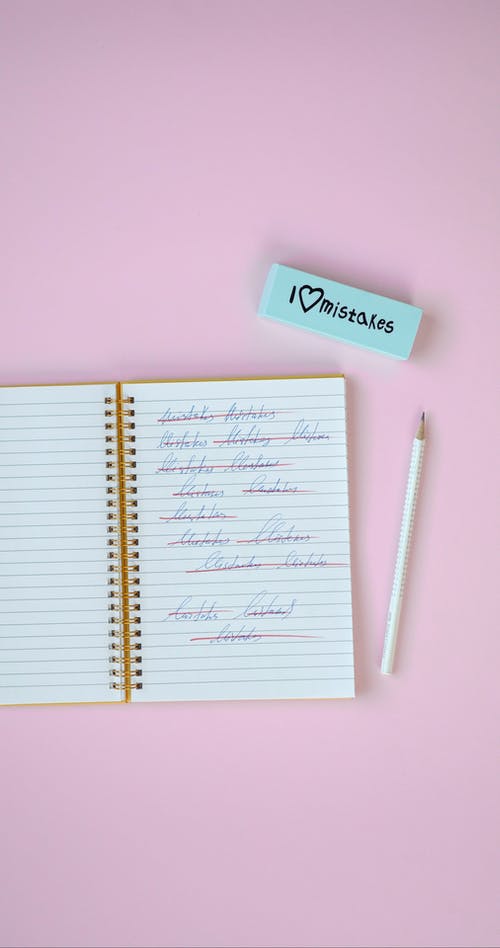 I♡mistakes
Mistakes Mistakes
Mistakes Mistakes Mistakes
Mistakes Mistakes
Mistakes Mistakes
Mistakes
Mistakes Mistakes
Mistakes Mistakes
Mistakes Mistakes
Mistakes